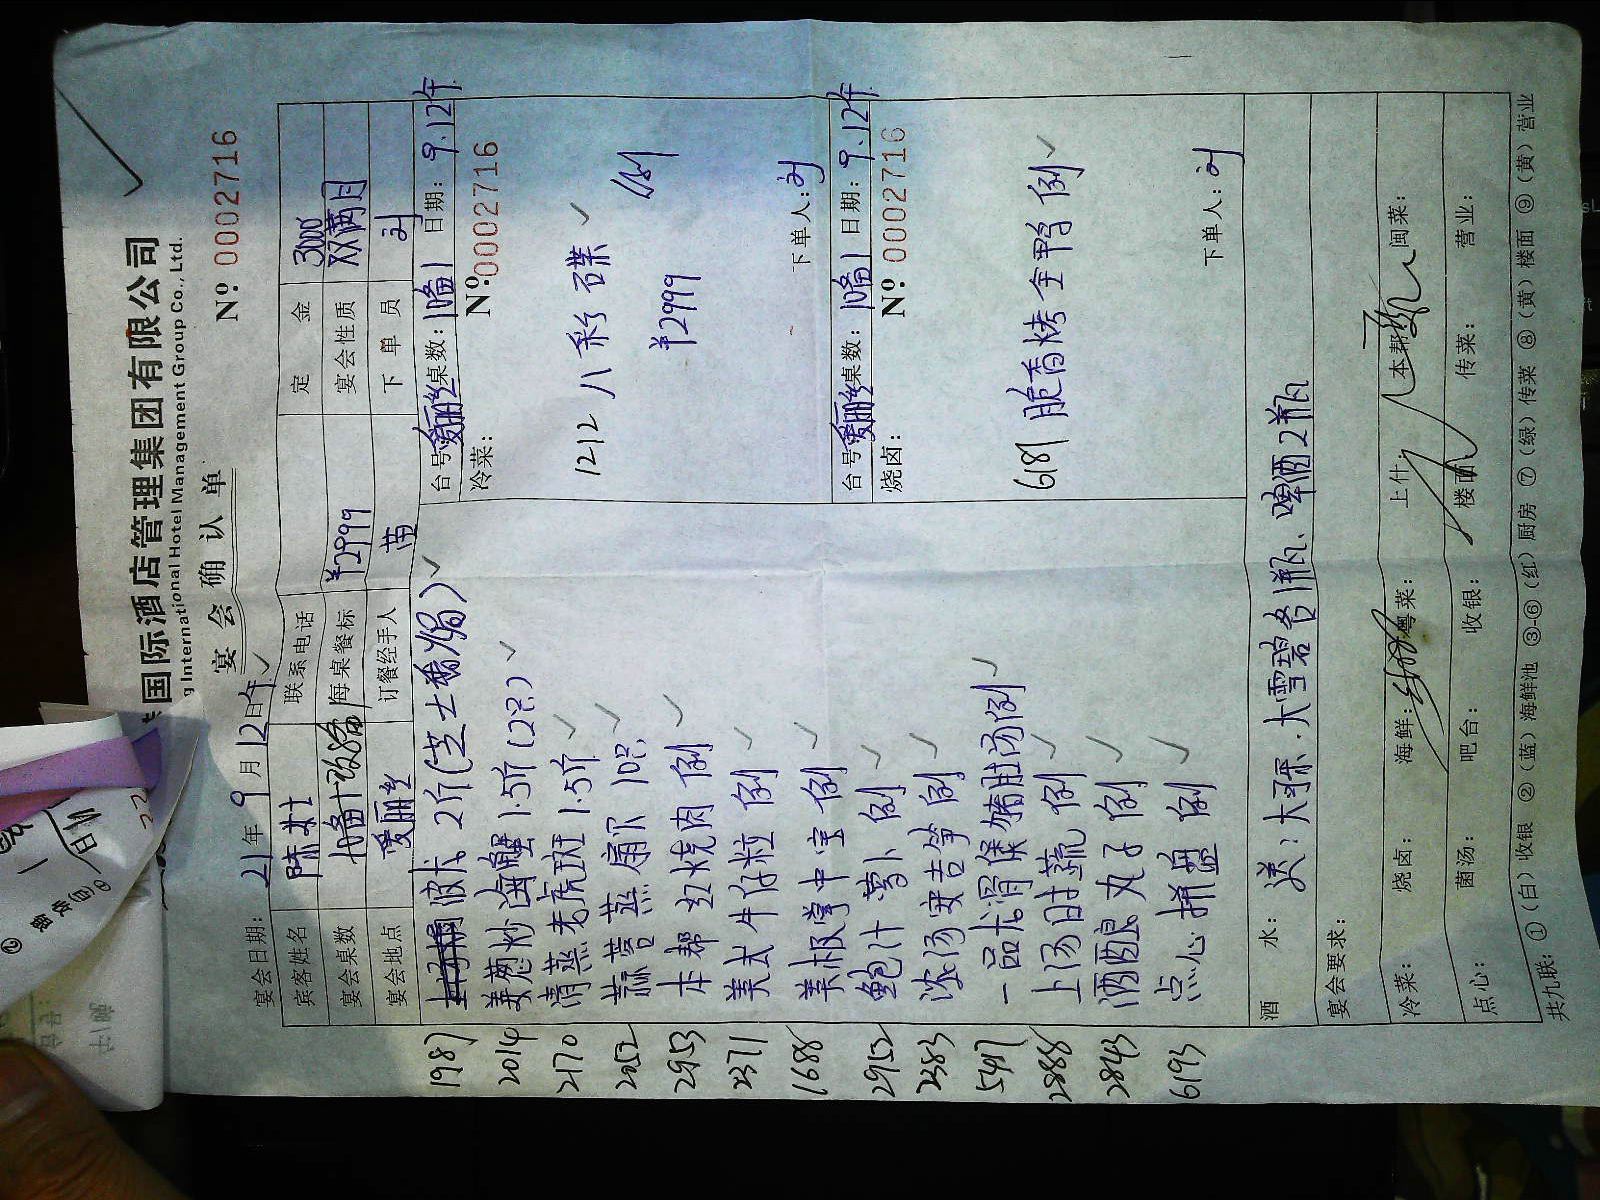 国际酒店管理集团有限公司
International Hotel Management Group Co., Ltd.
宴会确认单
Nº 0002716
宴会日期: 21年9月12日午
宾客姓名 陈女士 联系电话 定金 3000
宴会桌数 每桌餐标 ¥2999 宴会性质 双满月
宴会地点 爱丽丝 订餐经手人 苗 下单员 刘
1987 波龙 2斤(芝士香焗)
2014 姜葱炒海蟹 1.5斤(2只)
2170 清蒸老虎斑 1.5斤
2052 蒜蓉蒸扇贝 10只
2953 本帮红烧肉 例
2371 美式牛仔粒 例
1688 美极掌中宝 例
2952 鲍汁萝卜 例
2383 浓汤安吉笋 例
5497 一品龙骨煲猪肚汤 例
2888 上汤时蔬 例
2843 酒酿丸子 例
6193 点心拼盘 例
台号: 爱丽丝 桌数: 10备1 日期: 9.12午
冷菜: Nº 0002716
1212 八彩碟
¥2999
下单人: 刘
台号: 爱丽丝 桌数: 10备1 日期: 9.12午
烧卤: Nº 0002716
6181 脆香烤全鸭 例
下单人: 刘
酒水: 送:大可乐.大雪碧各1瓶、啤酒2瓶
宴会要求:
冷菜: 烧卤: 海鲜: 粤菜: 上什: 本帮 闽菜:
点心: 菌汤: 吧台: 收银: 楼面 传菜: 营业:
共九联: ①(白)收银 ②(蓝)海鲜池 ③-⑥(红)厨房 ⑦(绿)传菜 ⑧(黄)楼面 ⑨(黄)营业